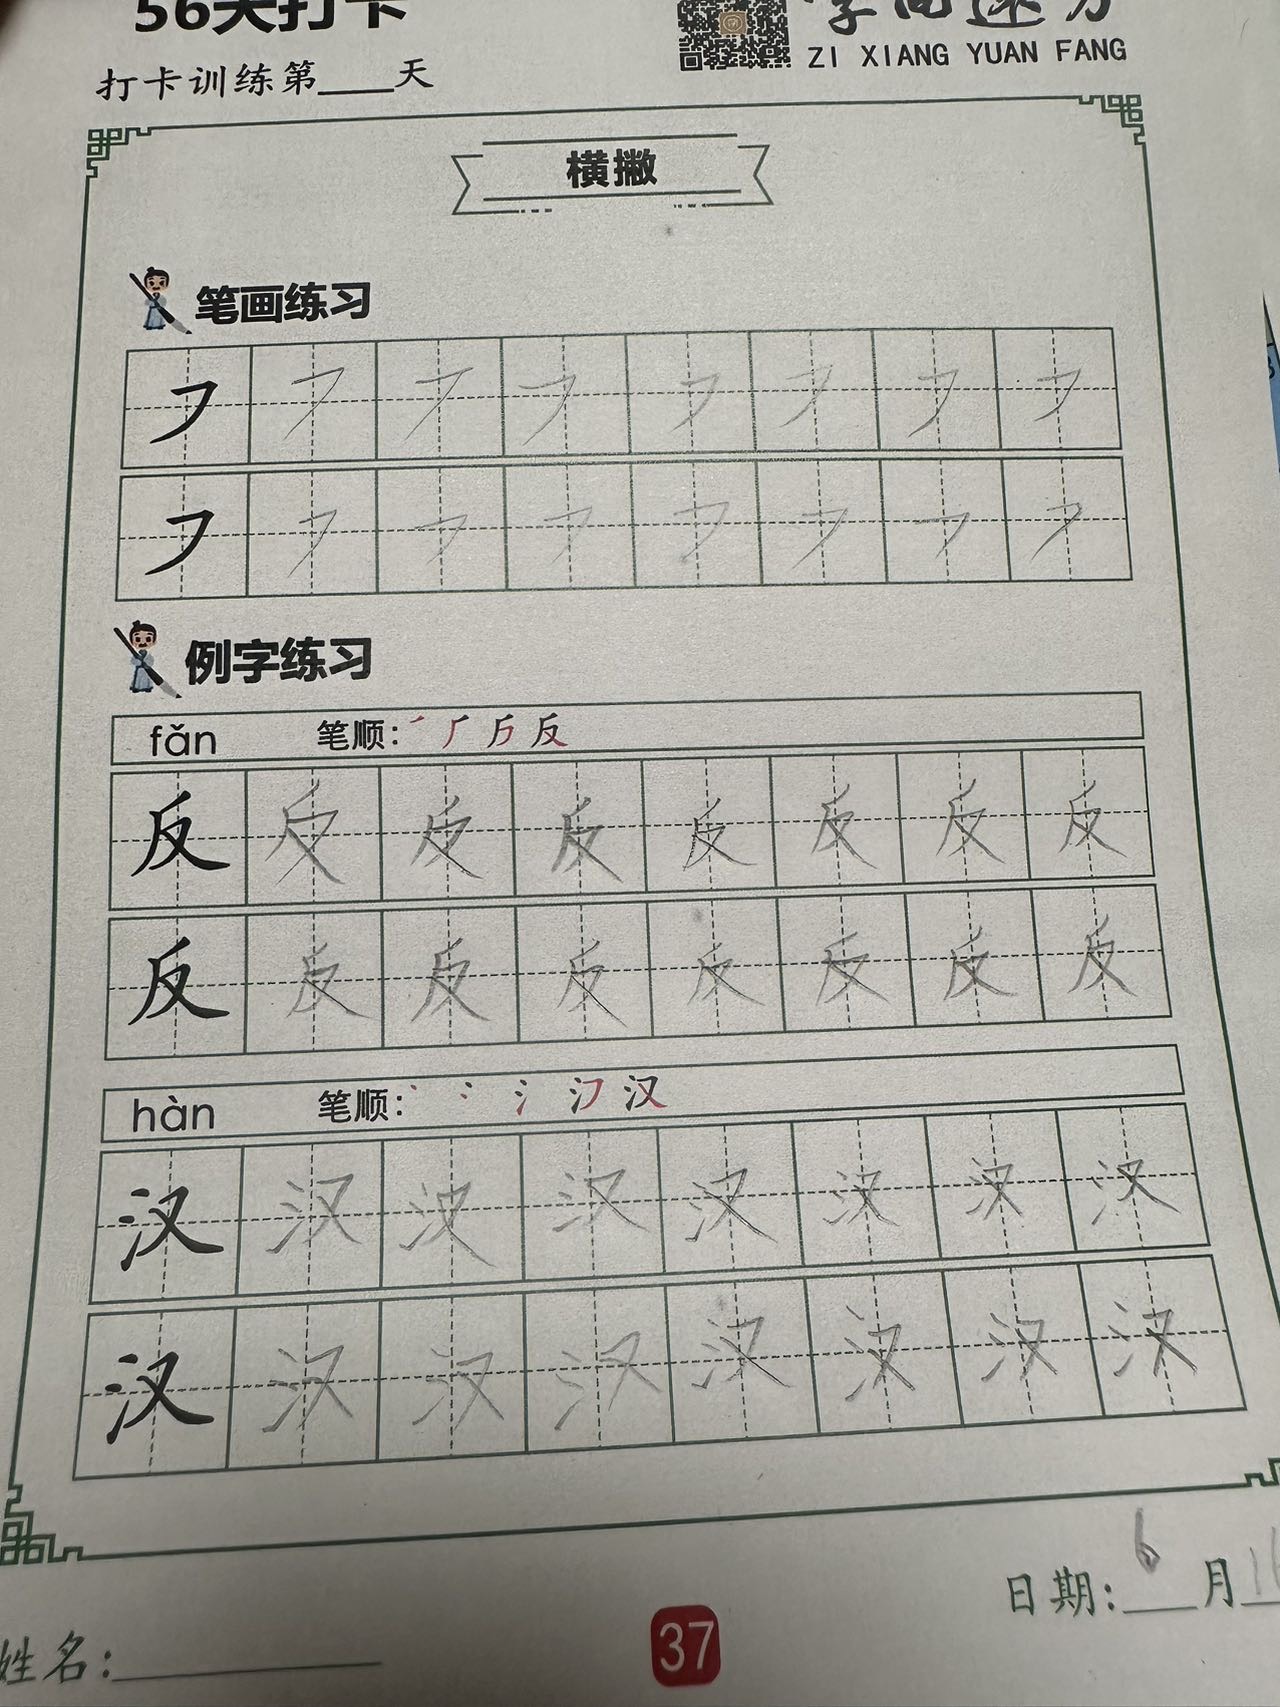 56天打卡
ZI XIANG YUAN FANG
打卡训练第____天
横撇
笔画练习
㇇ ㇇ ㇇ ㇇ ㇇ ㇇ ㇇ ㇇
㇇ ㇇ ㇇ ㇇ ㇇ ㇇ ㇇ ㇇
例字练习
fǎn 笔顺: 反
反 反 反 反 反 反 反 反
反 反 反 反 反 反 反 反
hàn 笔顺: 汉
汉 汉 汉 汉 汉 汉 汉 汉
汉 汉 汉 汉 汉 汉 汉 汉
日期: 6 月 16
姓名:
37